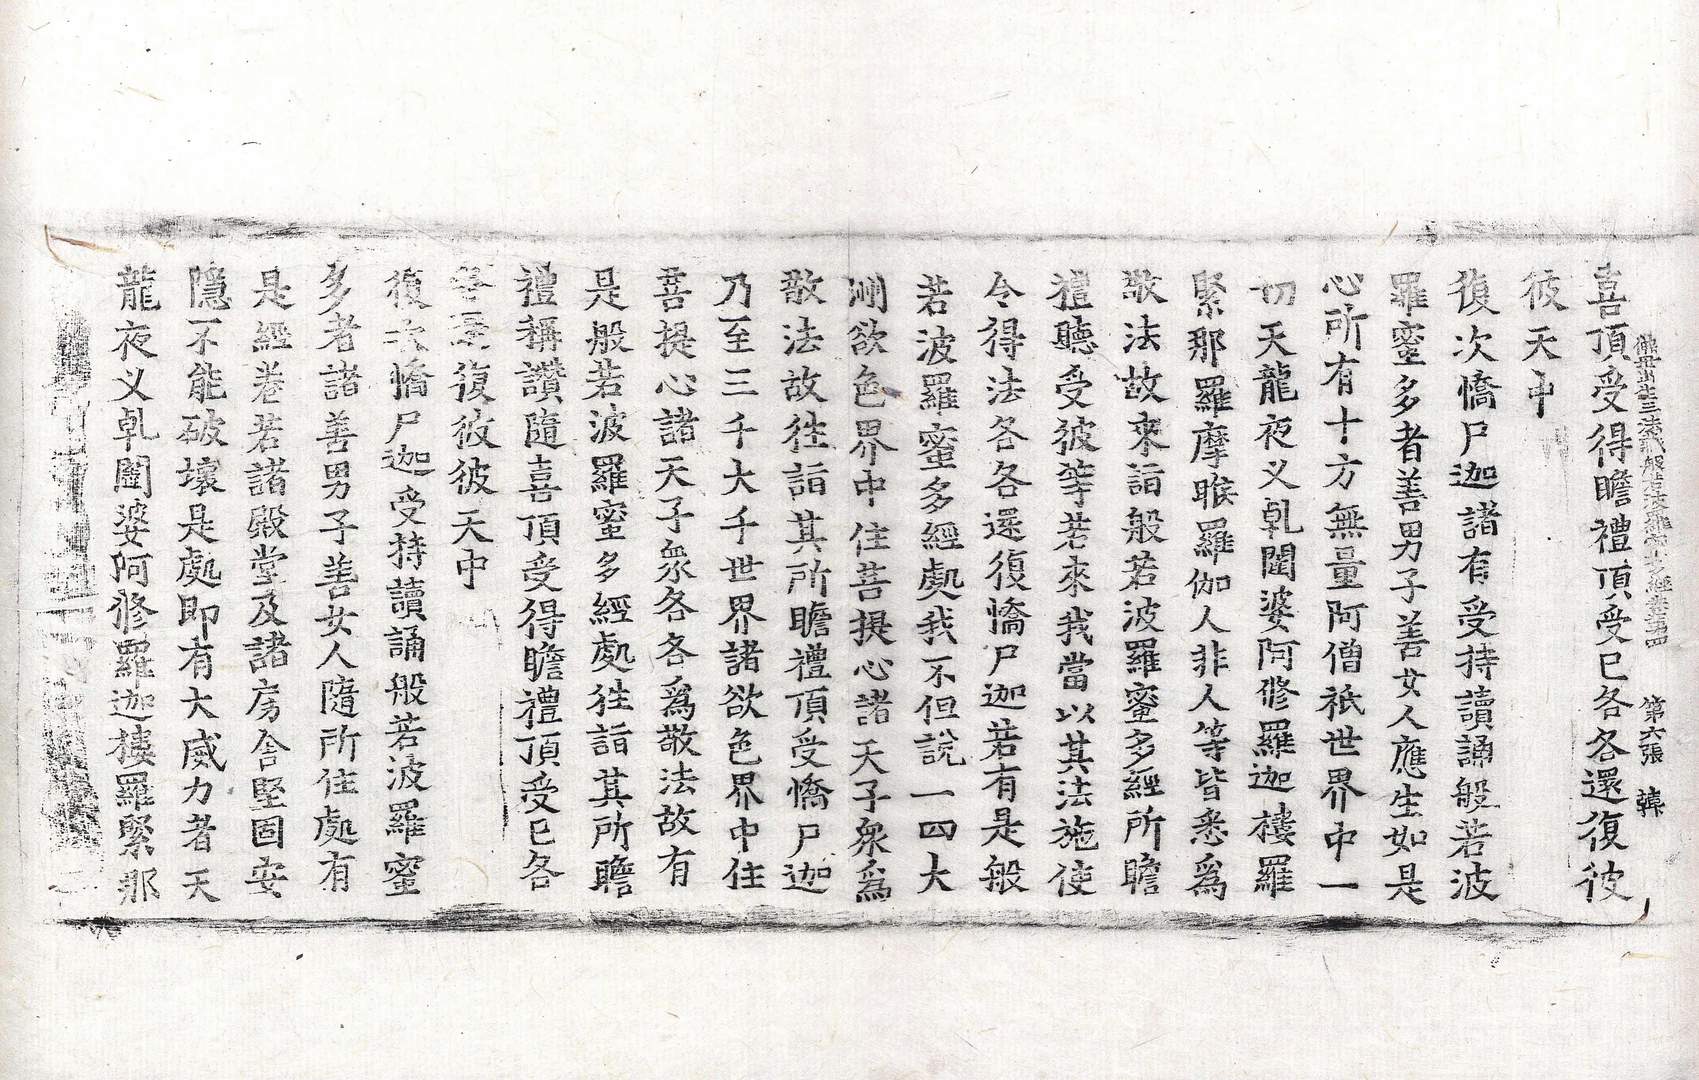 佛母出生三法藏般若波羅蜜多經卷第四 第六張 韓
喜頂受得瞻禮頂受已各各還復彼
彼天中
復次憍尸迦諸有受持讀誦般若波
羅蜜多者善男子善女人應生如是
心所有十方無量阿僧祇世界中一
切天龍夜义乹闥婆阿修羅迦樓羅
緊那羅摩睺羅伽人非人等皆悉爲
敬法故來詣般若波羅蜜多經所瞻
禮聽受彼等若來我當以其法施使
令得法各各還復憍尸迦若有是般
若波羅蜜多經處我不但說一四大
洲欲色界中住菩提心諸天子衆爲
敬法故徃詣其所瞻禮頂受憍尸迦
乃至三千大千世界諸欲色界中住
菩提心諸天子衆各各爲敬法故有
是般若波羅蜜多經處徃詣其所瞻
禮稱讃隨喜頂受得瞻禮頂受已各
各還復彼彼天中
復次憍尸迦受持讀誦般若波羅蜜
多者諸善男子善女人隨所住處有
是經卷若諸殿堂及諸房舍堅固安
隱不能破壞是處即有大威力者天
龍夜义乹闥婆阿修羅迦樓羅緊那